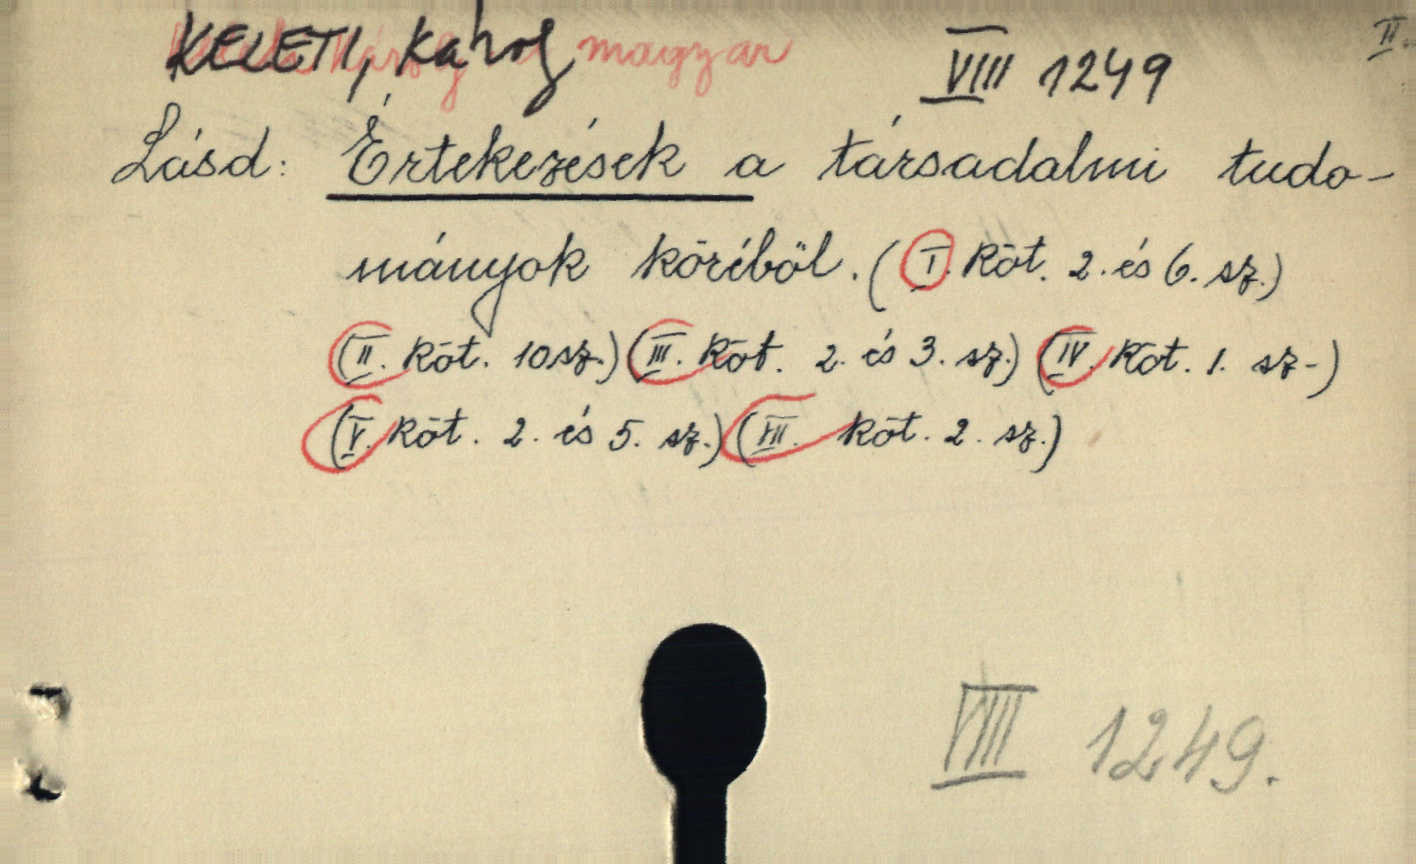 KELETI, Károly magyar VIII 1249 II.
Lásd: Értekezések a társadalmi tudo-
mányok köréböl. (I. Köt. 2. és 6. sz.)
(II. Köt. 10 sz.) (III. Köt. 2. és 3. sz.) (IV. Köt. 1. sz.)
(V. Köt. 2. és 5. sz.) (VII. Köt. 2. sz.)
VIII 1249.